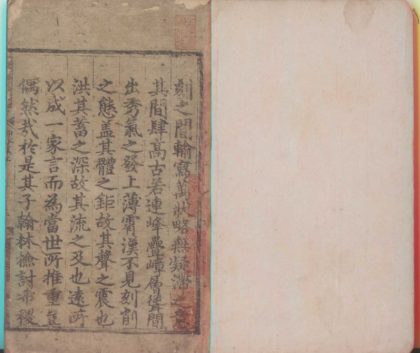 刻之間輸寫萬狀略無疑滯之意
其間肆高古若連峰疊嶂屬聳間
出秀氣之發上薄霄漢不見刻削
之態盖其體之鉅故其聲之震也
洪其蓄之深故其流之及也遠所
以成一家言而為當世所推重豈
偶然㢤於是其子翰林撿討希稷